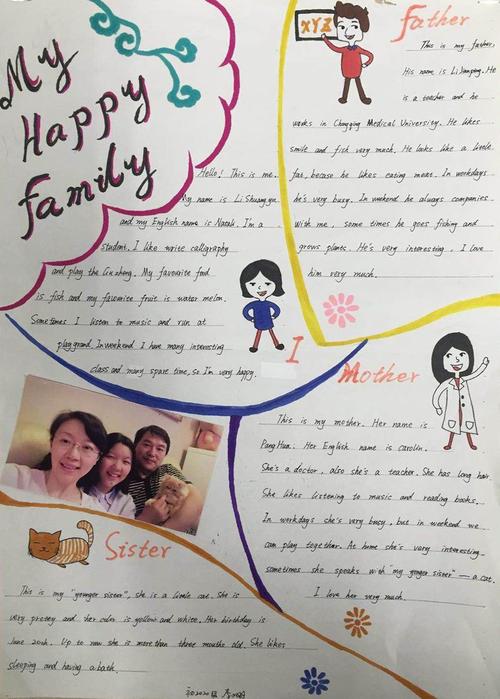 My
Happy
Family
Hello! This is me.
My name is Li Shuangyue
and my English name is Natali. I'm a
student. I like write calligraphy
and play the Guzheng. My favourite food
is fish and my favourite fruit is water melon.
Sometimes I listen to music and run at
playgrand. In weekend I have many interesting
class and many spare time, so I'm very happy.
I
XYZ
Father
This is my father.
His name is Li Jianping. He
is a teacher and he
works in Chongqing Medical University. He likes
smile and fish very much. He looks like a little
fat, because he likes eating meat. In workdays
he's very busy. In weekend he always companies
with me, some times he goes fishing and
grows plants. He's very interesting. I love
him very much.
Mother
This is my mother. Her name is
Pang Hua. Her English name is carolin.
She's a doctor, also she's a teacher. She has long hair
She likes listening to music and reading books.
In workdays she's very busy, but in weekend we
can play together. At home she's very interesting.
sometimes she speaks with "my yonger sister" — a cat.
I love her very much.
Sister
This is my "younger sister", she is a little cat. She is
very pretty and her color is yellow and white. Her birthday is
June 20th. Up to now she is more than three months old. She likes
sleeping and having a bath.
初2020级